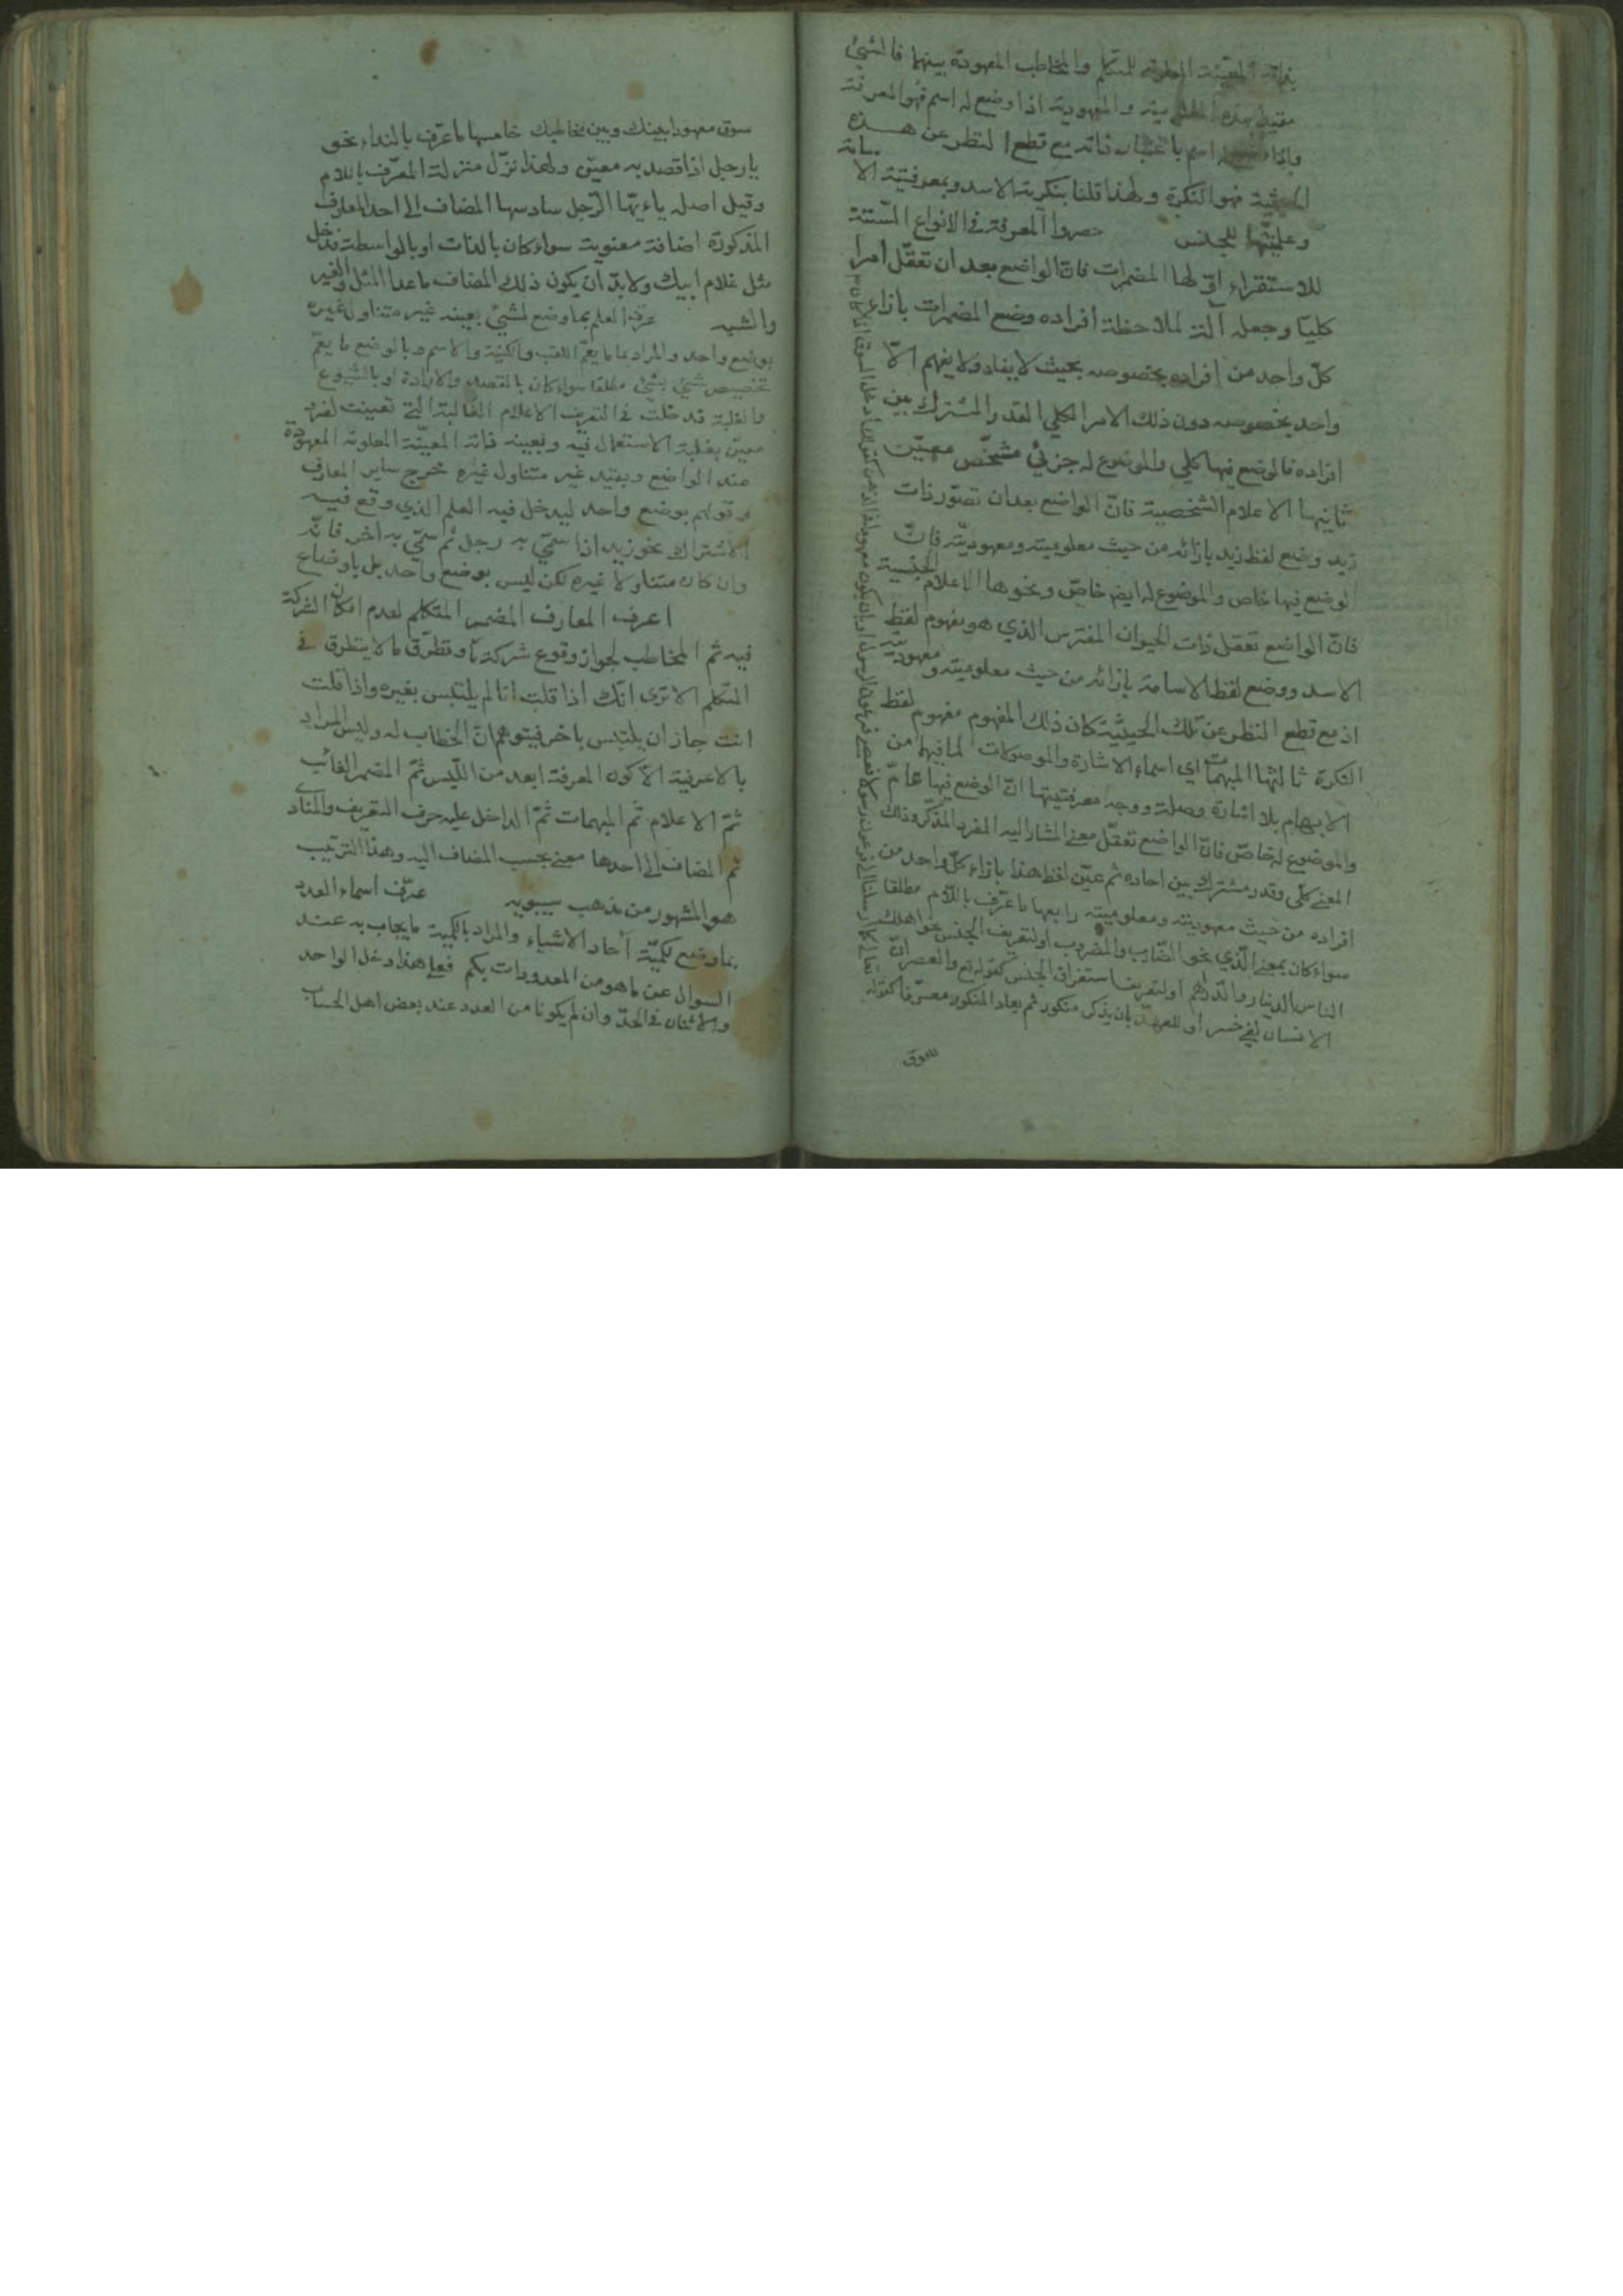 بذاته المعيّنة المعلومة للمتكلم والمخاطب المعهودة بينهما فالشئ
مقيد بهذه المعلومية والمعهودية اذا وضع له اسم فهو المعرفة
واذا وضع اسم باعتبار ذاته مع قطع النظر عن هذه
الحيثية فهو النكرة ولهذا قلنا بنكرية الاسد وبمعرفتية الاسامة
وعلميّتها للجنس حصروا المعرفة في الانواع الستة
للاستقراء اوّلها المضمرات فانّ الواضع بعد ان تعقّل امرا
كليّا وجعله آلة لملاحظة افراده وضع المضمرات بازاء
كلّ واحد من افراده بخصوصه بحيث لا يفاد ولا يفهم الّا
واحد بخصوصه دون ذلك الامر الكلي القدر المشترك بين
افراده فالوضع فيها كلي والموضوع له جزئي مشخّص معيّن
ثانيها الاعلام الشخصية فانّ الواضع بعد ان تصوّر ذات
زيد وضع لفظ زيد بازائه من حيث معلوميته ومعهوديّته فانّ
الوضع فيها خاص والموضوع له ايضا خاصّ ونحوها الاعلام الجنسية
فانّ الواضع تعقل ذات الحيوان المفترس الذي هو مفهوم لفظ
الاسد ووضع لفظ الاسامة بازائه من حيث معلوميته ومعهوديته
اذ مع قطع النظر عن تلك الحيثيّة كان ذلك المفهوم مفهوم لفظ
النكرة ثالثها المبهمات اي اسماء الاشارة والموصولات لما فيهما من
الابهام بلا اشارة وصلة ووجه معرفتيتها انّ الوضع فيها عامّ
والموضوع له خاصّ فانّ الواضع تعقّل معنى المشار اليه المفرد المذكّر وذلك
المعنى كلّى وقدر مشترك بين احاده ثم عيّن لفظ هذا بازاء كلّ واحد من
افراده من حيث معهوديته ومعلوميته رابعها ما عرّف باللّام مطلقا
سواء كان بمعنى الّذي نحو الضّارب والمضروب او لتعريف الجنس نحو اهلك
الناس الدينار والدّرهم او لتعريف استغراق الجنس كقوله تع والعصر انّ
الانسان لفي خسر او للعهد بان يذكر منكور ثم يعاد المنكور معرّفا كقوله
تعالى كما ارسلنا الى فرعون رسولا فعصى فرعون الرسول او بان يكون معهودا في الذهن كقولك ادخل السوق اذا كان
سوق
سوق معهود ابينك وبين مخاطبك خامسها ما عرّف بالنداء نحو
يا رجل اذا قصد به معيّن ولهذا نزّل منزلة المعرّف باللام
وقيل اصله يا ءيّها الرّجل سادسها المضاف الى احد المعارف
المذكورة اضافة معنوية سواء كان بالذات او بالواسطة فدخل
مثل غلام ابيك ولا بدّ ان يكون ذلك المضاف ما عدا المثل والغير
والشبه عرف العلم بما وضع لشئ بعينه غير متناول غيره
بوضع واحد والمراد بما ما يعمّ اللقب والكنية والاسم وبالوضع ما يعمّ
تخصيص شئ بشئ مطلقا سواء كان بالقصد والارادة او بالشيوع
والغلبة قد دخلت في التعريف الاعلام الغالبة التي تعينت لفرد
معيّن بغلبة الاستعمال فيه وبعينه ذاته المعيّنة المعلومة المعهودة
عند الواضع وبقيد غير متناول غيره خرج ساير المعارف
وقولهم بوضع واحد ليدخل فيه العلم الذي وقع فيه
الاشتراك نحو زيد اذا سمّي به رجل ثم سمّي به اخر فانّه
وان كان متناولا غيره لكن ليس بوضع واحد بل باوضاع
اعرف المعارف المضمر المتكلم لعدم امكان الشركة
فيه ثم المخاطب لجواز وقوع شركة ما وتطرّق ما لا يتطرق في
المتكلم الا ترى انّك اذا قلت انا لم يلتبس بغيره واذا قلت
انت جاز ان يلتبس باخر فيتوهم انّ الخطاب له وليس المراد
بالاعرفية الّا كون المعرفة ابعد من اللّبس ثمّ المضمر الغائب
ثمّ الاعلام ثم المبهمات ثمّ الداخل عليه حرف التعريف والمنادى
ثم المضاف الى احدها معنى بحسب المضاف اليه وهذا الترتيب
هو المشهور من مذهب سيبويه عرّف اسماء العدد
بما وضع لكميّة آحاد الاشياء والمراد بالكمية ما يجاب به عند
السوال عن ما هو من المعدودات بكم فعلى هذا دخل الواحد
والاثنان في الحدّ وان لم يكونا من العدد عند بعض اهل الحساب